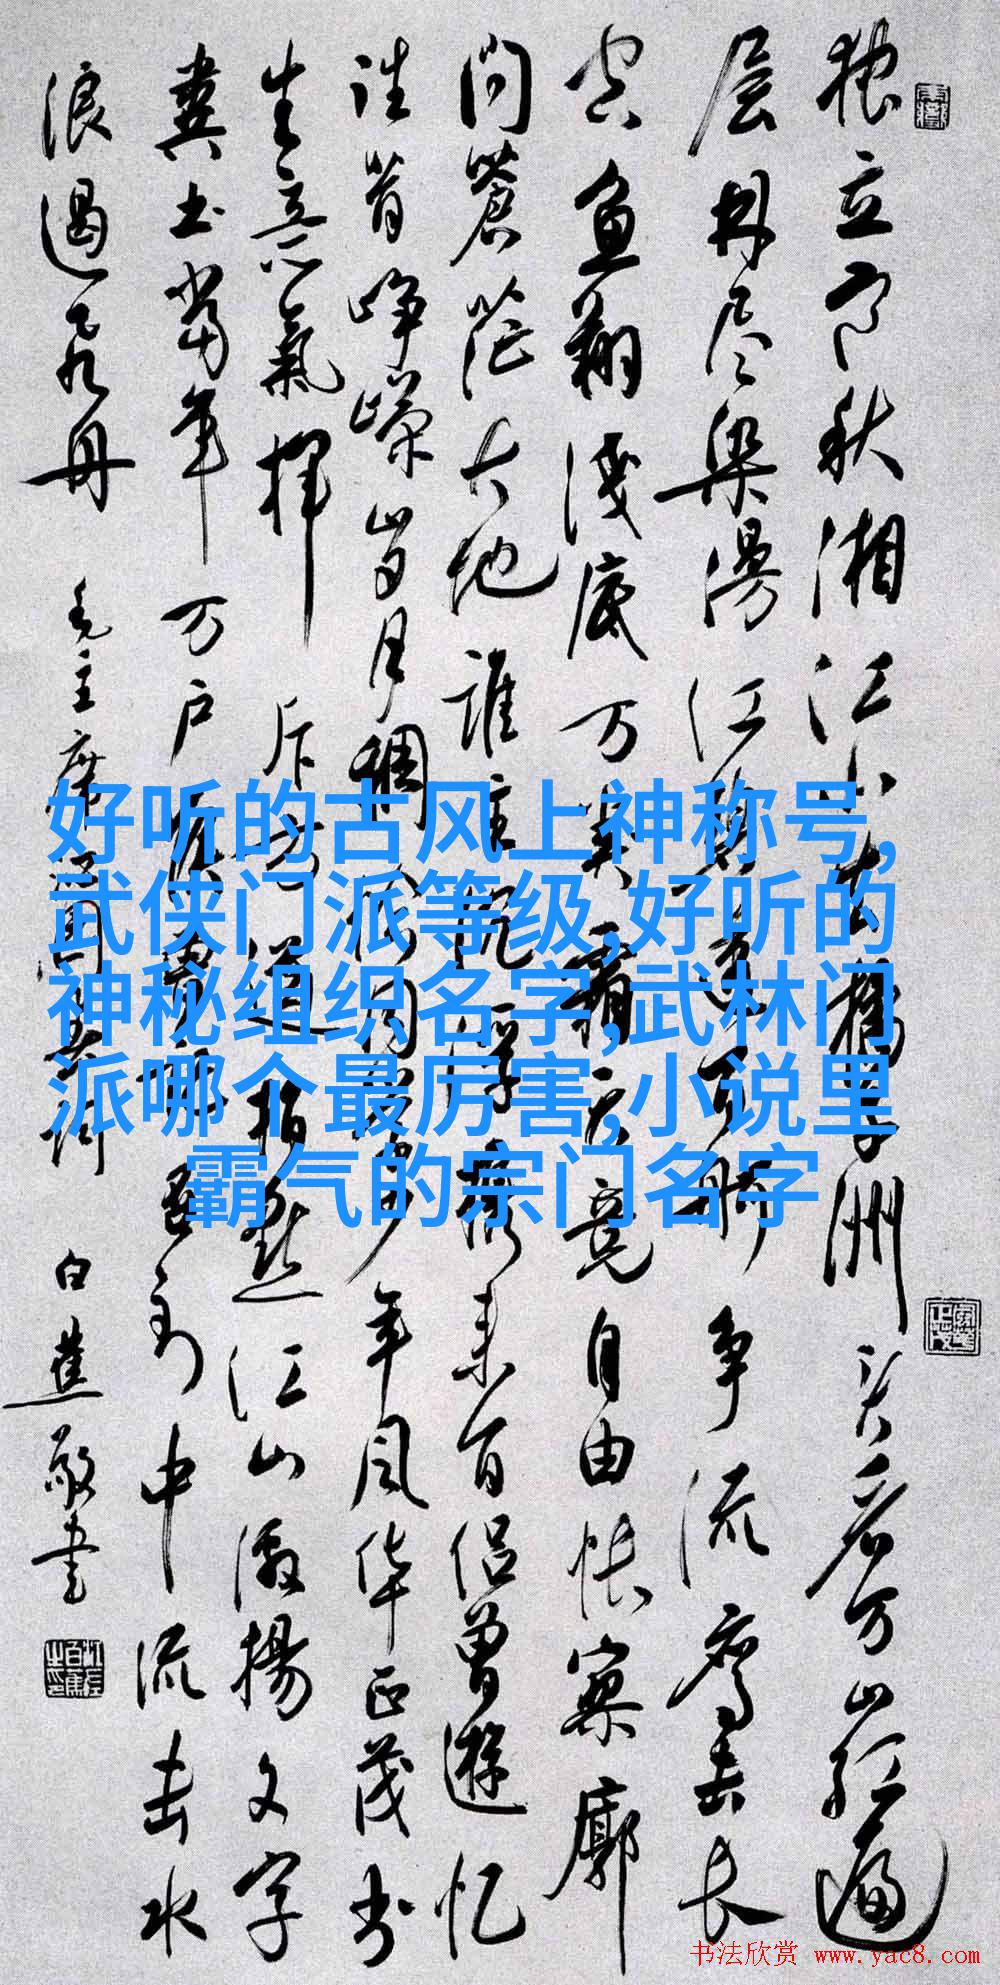 好听的古风上神称号,
武侠门派等级,好听的
神秘组织名字,武林门
派哪个最厉害,小说里
霸气的宗门名字
独立寒秋湘江北去橘子洲头看万山红遍
层林尽染漫江碧透百舸争流鹰击长
空鱼翔浅底万类霜天竞自由怅寥廓
问蒼茫大地誰主沉浮携来百侣曾遊忆
往昔峥嵘岁月稠恰同学少年风华正茂书
生意氣挥斥方遒指點江山激揚文字
粪土当年万户侯曾记否到中流击水
浪遏飞舟 毛主席沁園春词 白蕉敬书
书法欣赏 www.yac8.com